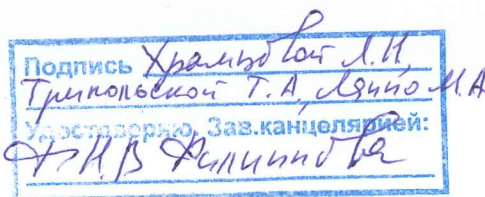 Подпись Храмцовой Л.Н,
Трипольской Т.А, Ляпно М.А
Удостоверяю. Зав.канцелярией:
Н.В Филиппова